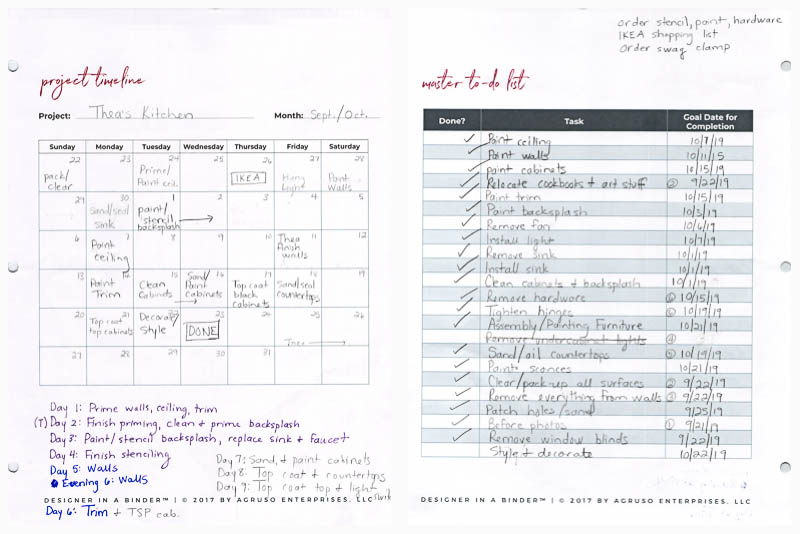 project timeline
Project: Thea's Kitchen Month: Sept./Oct.
Sunday Monday Tuesday Wednesday Thursday Friday Saturday
22 23 24 25 26 27 28
pack/ clear
Prime/ Paint ceil.
IKEA
Hang Light
Paint Walls
29 30 1 2 3 4 5
Sand/seal sink
paint/ stencil backsplash
6 7 8 9 10 11 12
Paint ceiling
Thea finish walls
13 14 15 16 17 18 19
Paint Trim
Clean Cabinets
Sand/ Paint cabinets
Top coat black cabinets
Sand/seal countertops
20 21 22 23 24 25 26
Top coat top cabinets
Decorate/ Style
DONE
27 28 29 30 31
Day 1: Prime walls, ceiling, trim
(T) Day 2: Finish priming, clean & prime backsplash
Day 3: Paint/stencil backsplash, replace sink & faucet
Day 4: Finish stenciling
Day 5: Walls
Evening 6: Walls
Day 6: Trim & TSP cab.
Day 7: Sand, & paint cabinets
Day 8: Top coat & countertops
Day 9: Top coat top & light
DESIGNER IN A BINDER™ | © 2017 BY AGRUSO ENTERPRISES, LLC
Order stencil, paint, hardware
IKEA shopping list
Order swag clamp
master to-do list
Done? Task Goal Date for Completion
Paint ceiling 10/7/19
Paint walls 10/11/15
paint cabinets 10/15/19
Relocate cookbooks & art stuff ② 9/22/19
Paint trim 10/15/19
Paint backsplash 10/3/19
Remove fan 10/6/19
Install light 10/7/19
Remove sink 10/1/19
Install sink 10/1/19
Clean cabinets & backsplash 10/1/19
Remove hardware 10/15/19
Tighten hinges 10/19/19
Assembly/Painting Furniture 10/21/19
Remove undercabinet lights ④
Sand/oil countertops 10/19/19
Paint sconces 10/21/19
Clear/pack-up all surfaces ② 9/22/19
Remove everything from walls ③ 9/22/19
Patch holes/sand 9/25/19
Before photos ① 9/21/19
Remove window blinds 9/22/19
Style & decorate 10/22/19
DESIGNER IN A BINDER™ | © 2017 BY AGRUSO ENTERPRISES, LLC